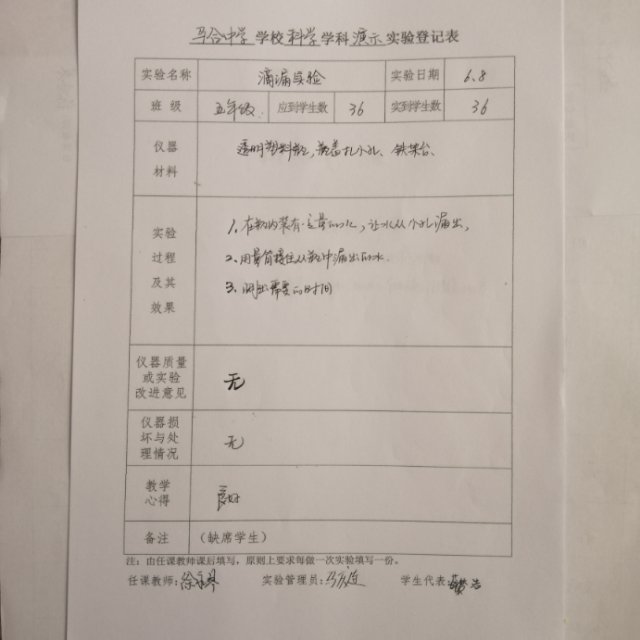 马合中学学校科学学科演示实验登记表
实验名称 滴漏实验 实验日期 6.8
班级 五年级 应到学生数 36 实到学生数 36
仪器材料 透明塑料瓶,瓶盖扎小孔、铁架台、
实验过程及其效果
1、在瓶内装有定量的水,让水从小孔漏出,
2、用量筒接住从瓶中漏出的水.
3、测出需要的时间
仪器质量或实验改进意见 无
仪器损坏与处理情况 无
教学心得 良好
备注 (缺席学生)
注:由任课教师课后填写,原则上要求每做一次实验填写一份。
任课教师: 实验管理员: 学生代表: